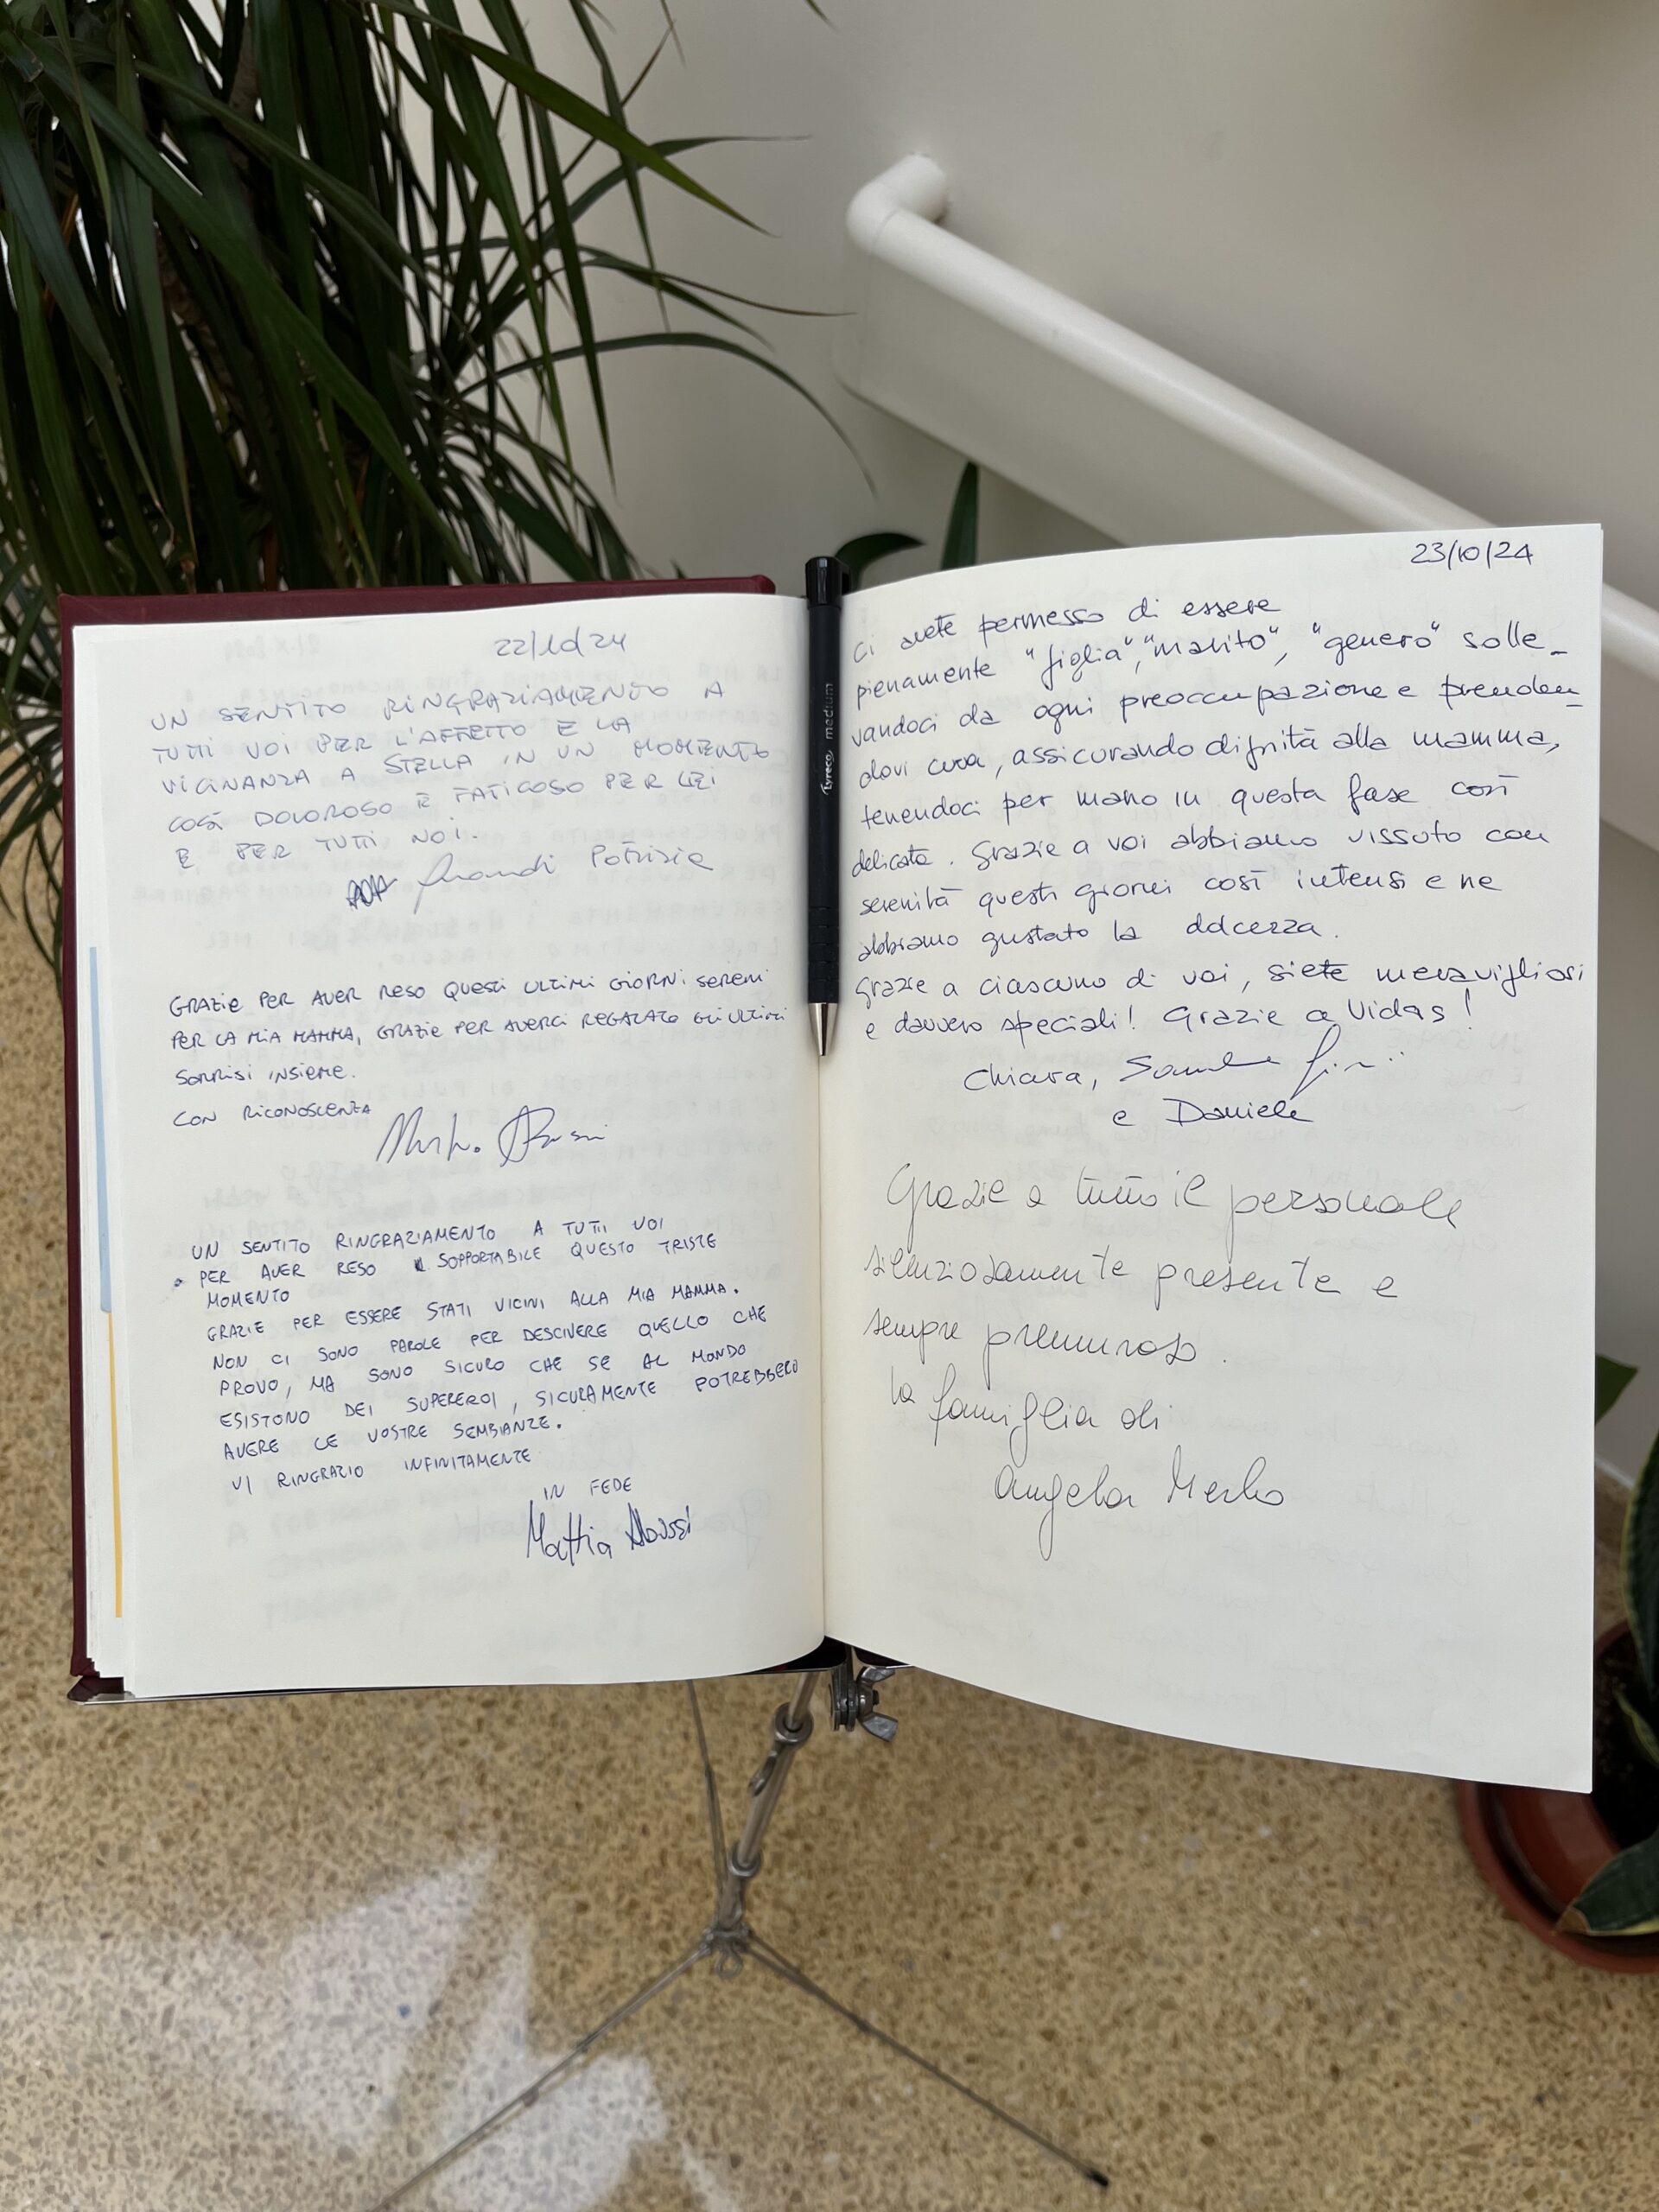 22/10/24
UN SENTITO RINGRAZIAMENTO A
TUTTI VOI PER L'AFFETTO E LA
VICINANZA A STELLA IN UN MOMENTO
COSÌ DOLOROSO E FATICOSO PER LEI
E PER TUTTI NOI.
Patrizia
GRAZIE PER AVER RESO QUESTI ULTIMI GIORNI SERENI
PER LA MIA MAMMA, GRAZIE PER AVERCI REGALATO GLI ULTIMI
SORRISI INSIEME.
CON RICONOSCENZA
UN SENTITO RINGRAZIAMENTO A TUTTI VOI
PER AVER RESO SOPPORTABILE QUESTO TRISTE
MOMENTO
GRAZIE PER ESSERE STATI VICINI ALLA MIA MAMMA.
NON CI SONO PAROLE PER DESCIVERE QUELLO CHE
PROVO, MA SONO SICURO CHE SE AL MONDO
ESISTONO DEI SUPEREROI, SICURAMENTE POTREBBERO
AVERE LE VOSTRE SEMBIANZE.
VI RINGRAZIO INFINITAMENTE
IN FEDE
Mattia
Tyreco medium
23/10/24
Ci avete permesso di essere
pienamente "figlia", "marito", "genero" solle-
vandoci da ogni preoccupazione e prenden-
dovi cura, assicurando dignità alla mamma,
tenendoci per mano in questa fase così
delicata. Grazie a voi abbiamo vissuto con
serenità questi giorni così intensi e ne
abbiamo gustato la dolcezza.
Grazie a ciascuno di voi, siete meravigliosi
e davvero speciali! Grazie a Vidas!
Chiara,
e Daniele
Grazie a tutto il personale
silenziosamente presente e
sempre premuroso.
la famiglia di
Angela Merlo